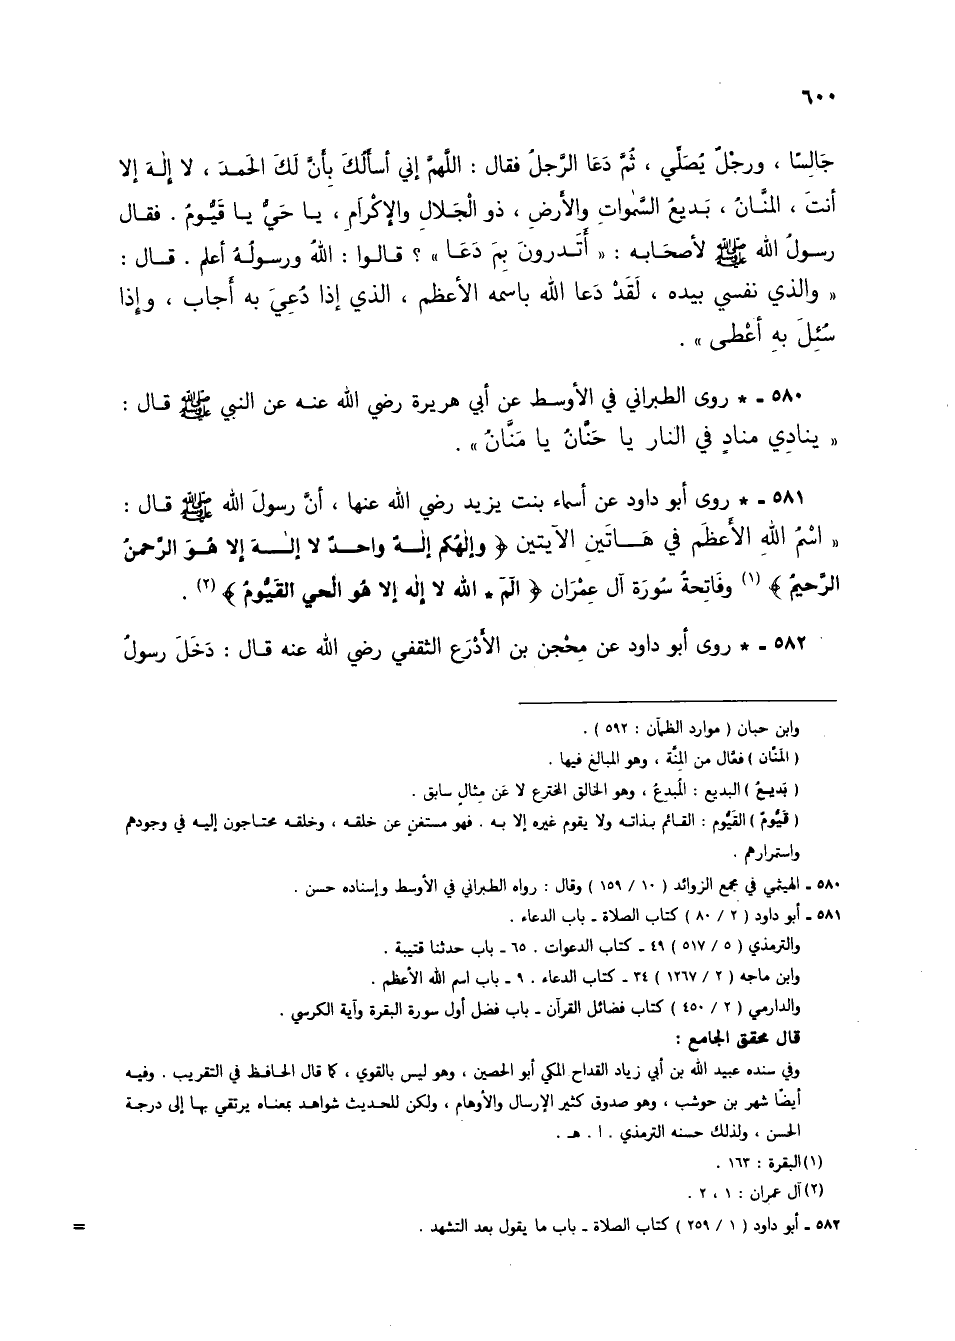 ٦٠٠
جَالِسًا ، ورجْلٌ يُصَلِّي ، ثُمَّ دَعَا الرَّجلُ فقال : اللَّهمَّ إني أسأَلُكَ بِأَنَّ لَكَ الحَمدَ ، لا إِلٰهَ إلا
أنتَ ، المنَّانُ ، بَديعُ السَّمٰواتِ والأَرضِ ، ذو الْجَلالِ والإكْرَامِ ، يا حَيُّ يا قَيُّومُ . فقال
رسولُ الله ﷺ لأصحَابه : « أَتَدرونَ بِمَ دَعَا » ؟ قالوا : اللهُ ورسولُهُ أعلم . قال :
« والذي نفسي بيده ، لَقَدْ دَعا الله باسمه الأعظم ، الذي إذا دُعِيَ به أَجاب ، وإِذا
سُئِلَ بِهِ أعْطى » .
٥٨٠ ـ * روى الطبراني في الأوسط عن أبي هريرة رضي الله عنه عن النبي ﷺ قال :
« ينادِي منادٍ في النار يا حَنَّانُ يا مَنَّانُ » .
٥٨١ ـ * روى أبو داود عن أسماء بنت يزيد رضي الله عنها ، أنَّ رسولَ الله ﷺ قال :
« اسْمُ اللهِ الأَعظَم في هَاتَينِ الآيتين ﴿ وإلهُكم إلهٌ واحدٌ لا إلهَ إلا هُوَ الرَّحمنُ
الرَّحيمُ ﴾ (١) وفَاتِحةُ سُورَة آل عِمْرَان ﴿ الٓمٓ * الله لا إله إلا هُو الْحي القيُّومُ ﴾ (٢) .
٥٨٢ ـ * روى أبو داود عن مِحْجن بن الأَدْرَع الثقفي رضي الله عنه قال : دَخَلَ رسولُ
وابن حبان ( موارد الظمآن : ٥٩٢ ) .
( المَنَّان ) فعَّال من المِنَّة ، وهو المبالغ فيها .
( بَديعُ ) البديع : المُبدعُ ، وهو الخالق المخترع لا عَن مِثالٍ سابق .
( قَيُّومُ ) القيُّوم : القائم بذاته ولا يقوم غيره إلا به . فهو مستغنٍ عن خلقه ، وخلقه محتاجون إليه في وجودهم
واستمرارهم .
٥٨٠ ـ الهيثمي في مجمع الزوائد ( ١٠ / ١٥٩ ) وقال : رواه الطبراني في الأوسط وإسناده حسن .
٥٨١ ـ أبو داود ( ٢ / ٨٠ ) كتاب الصلاة ـ باب الدعاء .
والترمذي ( ٥ / ٥١٧ ) ٤٩ ـ كتاب الدعوات . ٦٥ ـ باب حدثنا قتيبة .
وابن ماجه ( ٢ / ١٢٦٧ ) ٣٤ ـ كتاب الدعاء . ٩ ـ باب اسم الله الأعظم .
والدارمي ( ٢ / ٤٥٠ ) كتاب فضائل القرآن ـ باب فضل أول سورة البقرة وآية الكرسي .
قال محقق الجامع :
وفي سنده عبيد الله بن أبي زياد القداح المكي أبو الحصين ، وهو ليس بالقوي ، كما قال الحافظ في التقريب . وفيه
أيضًا شهر بن حوشب ، وهو صدوق كثير الإرسال والأوهام ، ولكن للحديث شواهد بمعناه يرتقي بها إلى درجة
الحسن ، ولذلك حسنه الترمذي . ا . هـ .
(١) البقرة : ١٦٣ .
(٢) آل عمران : ١ ، ٢ .
٥٨٢ ـ أبو داود ( ١ / ٢٥٩ ) كتاب الصلاة ـ باب ما يقول بعد التشهد .
=